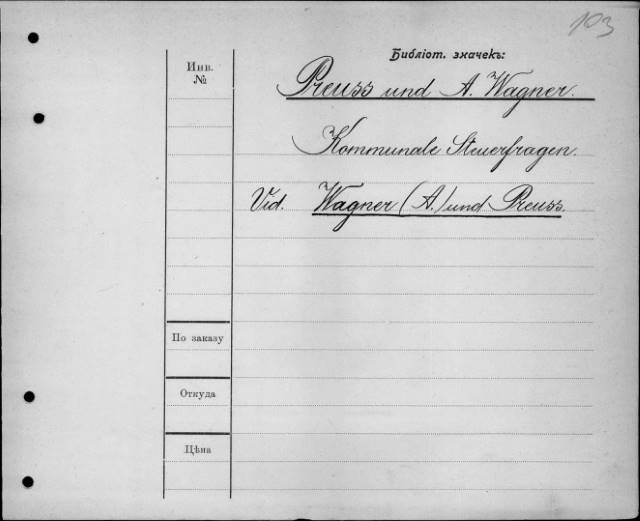 103
Библіот. значекъ:
Инв.
№
Preuss und A. Wagner.
Kommunale Steuerfragen.
Vid. Wagner (A.) und Preuss.
По заказу
Откуда
Цѣна